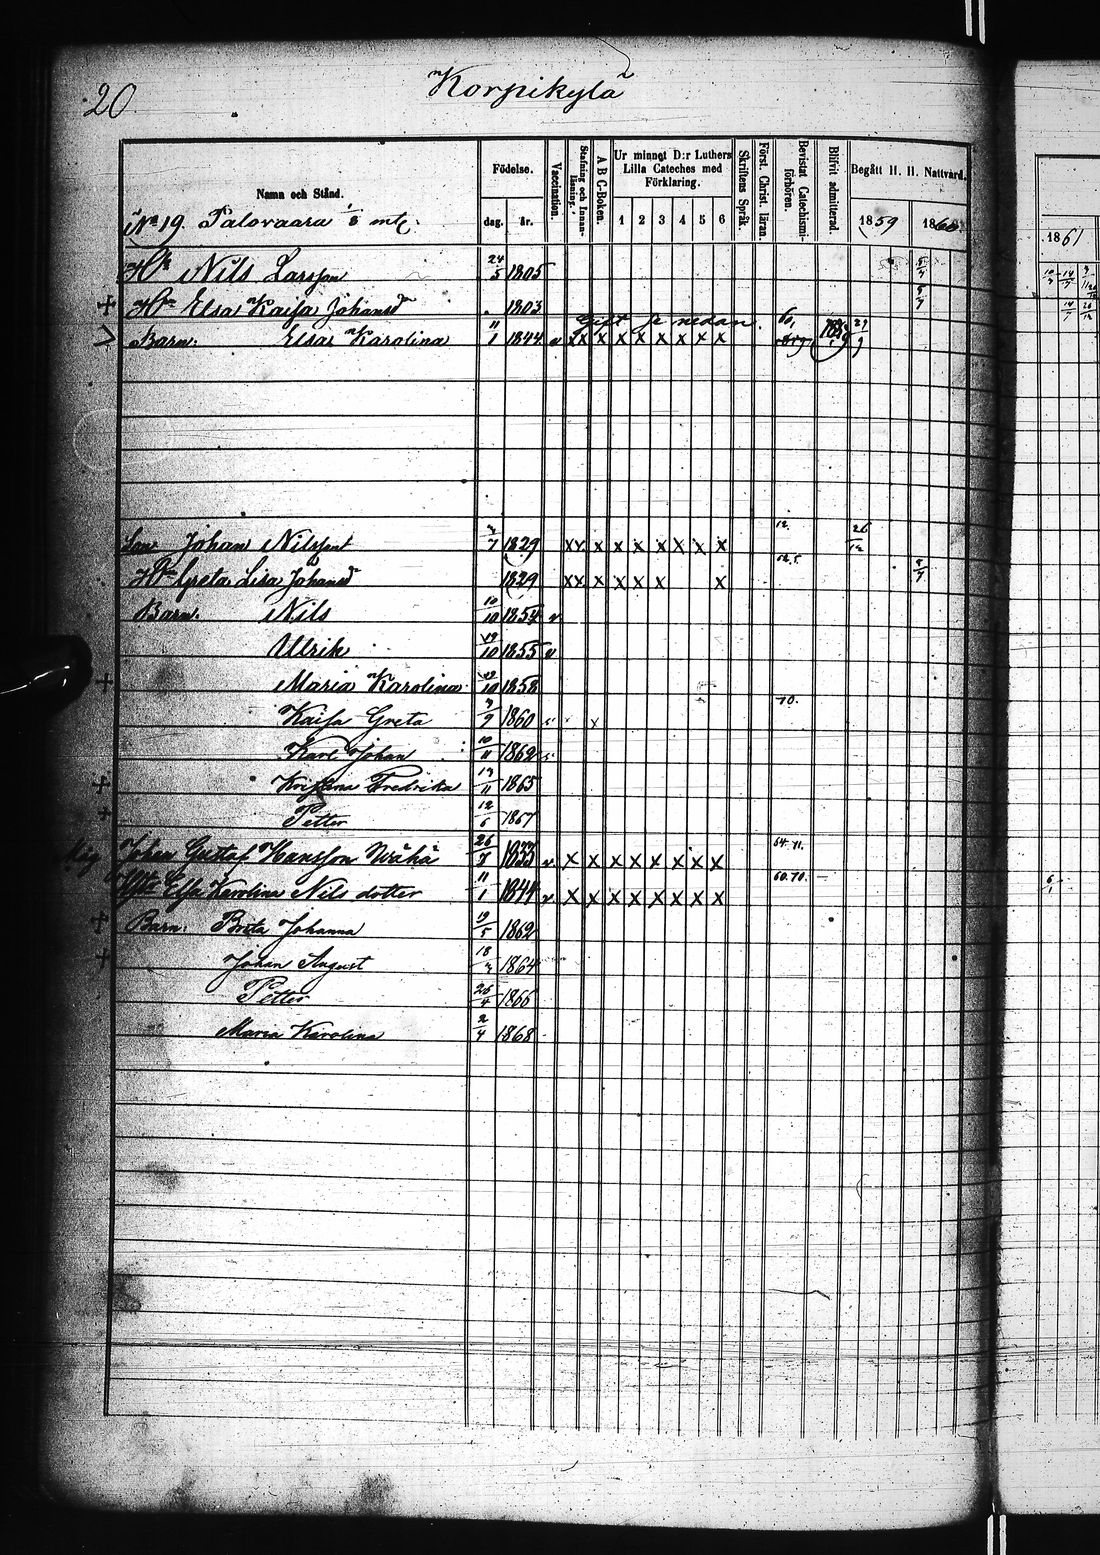 20
Korpikylä
Namn och Stånd. Födelse. dag. år. Vaccination. Stafning och Innanläsning. A B C-Boken. Ur minnet D:r Luthers Lilla Cateches med Förklaring. 1 2 3 4 5 6 Skriftens Språk. Först. Christ. läran. Bevistat Catechismiförhören. Blifvit admitterad Begått H. H. Nattvard. 1859 1860 1861
No 19. Palovaara 1/8 mtl.
Nils Larsson 24/5 1805 5/7
+ Elsa Kaisa Johansd 1803 5/7
Gift se nedan
Barn: Elsa Karolina 11/1 1844 v x x x x x x x x x
Son Johan Nilsson 1829 x x x x x x x x x 12. 26/12
Greta Lisa Johansd 1829 x x x x x x x
Barn. Nils 10/10 1854 v
Ulrik 19/10 1855 v
+ Maria Karolina 1858
Kaisa Greta 1860 x 70.
Karl Johan 10/11 1862
+ Kristina Fredrika 1865
+ Petter 12/6 1867
Johan Gustaf Hansson Wähä 1833 v x x x x x x x x
Elsa Karolina Nils dotter 11/1 1844 v x x x x x x x x 60. 70.
+ Barn: Brita Johanna 19/5 1862
+ Johan August 1864
Petter 26/4 1866
Maria Karolina 2/4 1868